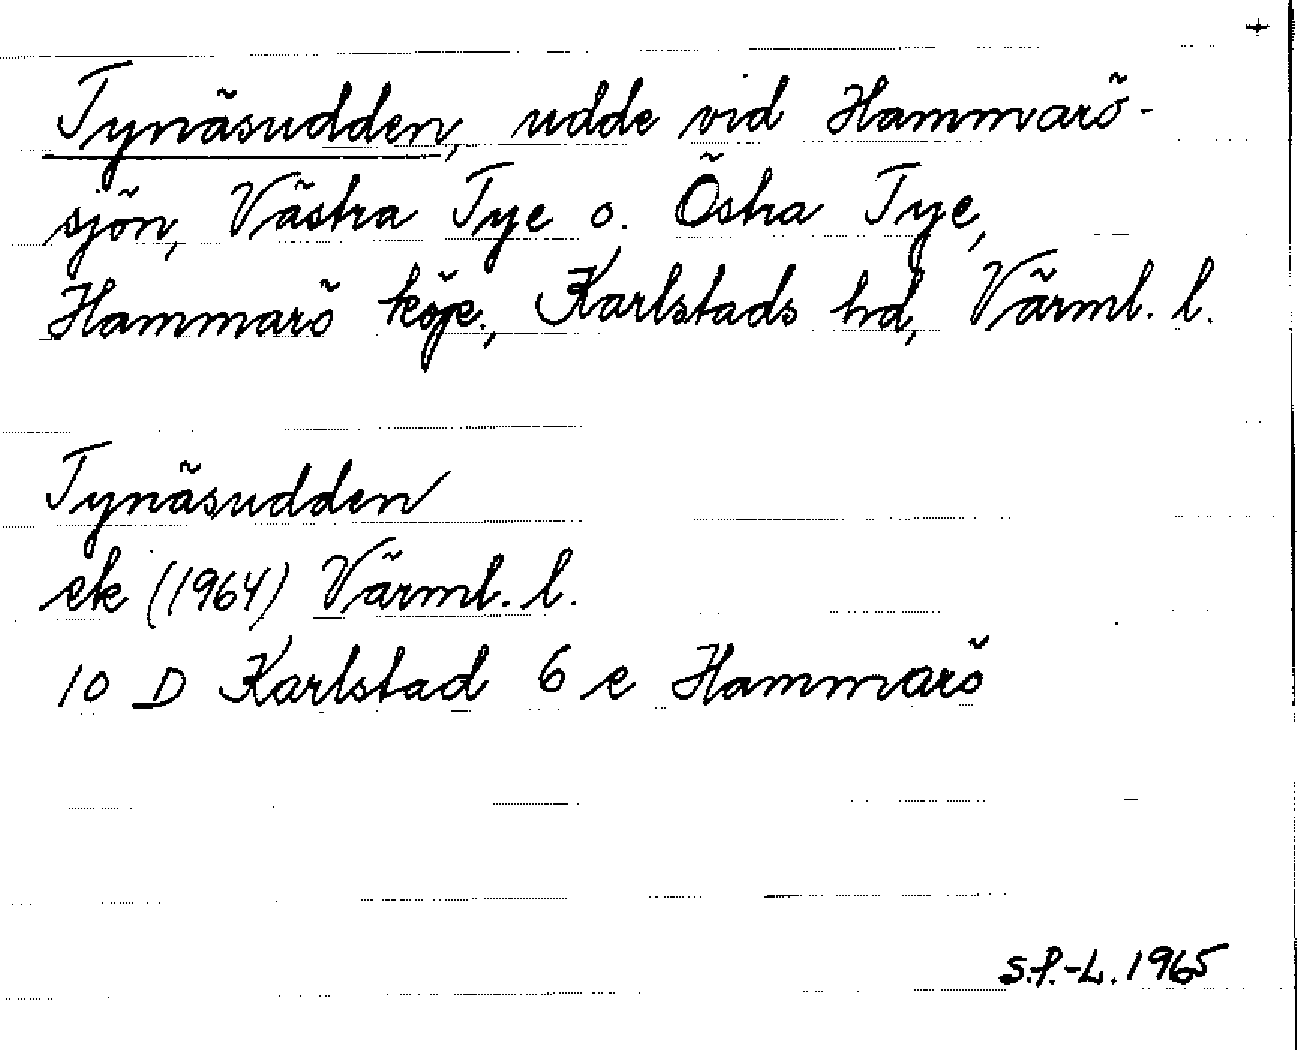 +
Tynäsudden, udde vid Hammarö-
sjön, Västra Tye o. Östra Tye,
Hammarö köp., Karlstads hd, Värml. l.
Tynäsudden
ek (1964) Värml. l.
10 D Karlstad 6 e Hammarö
S.P.-L. 1965